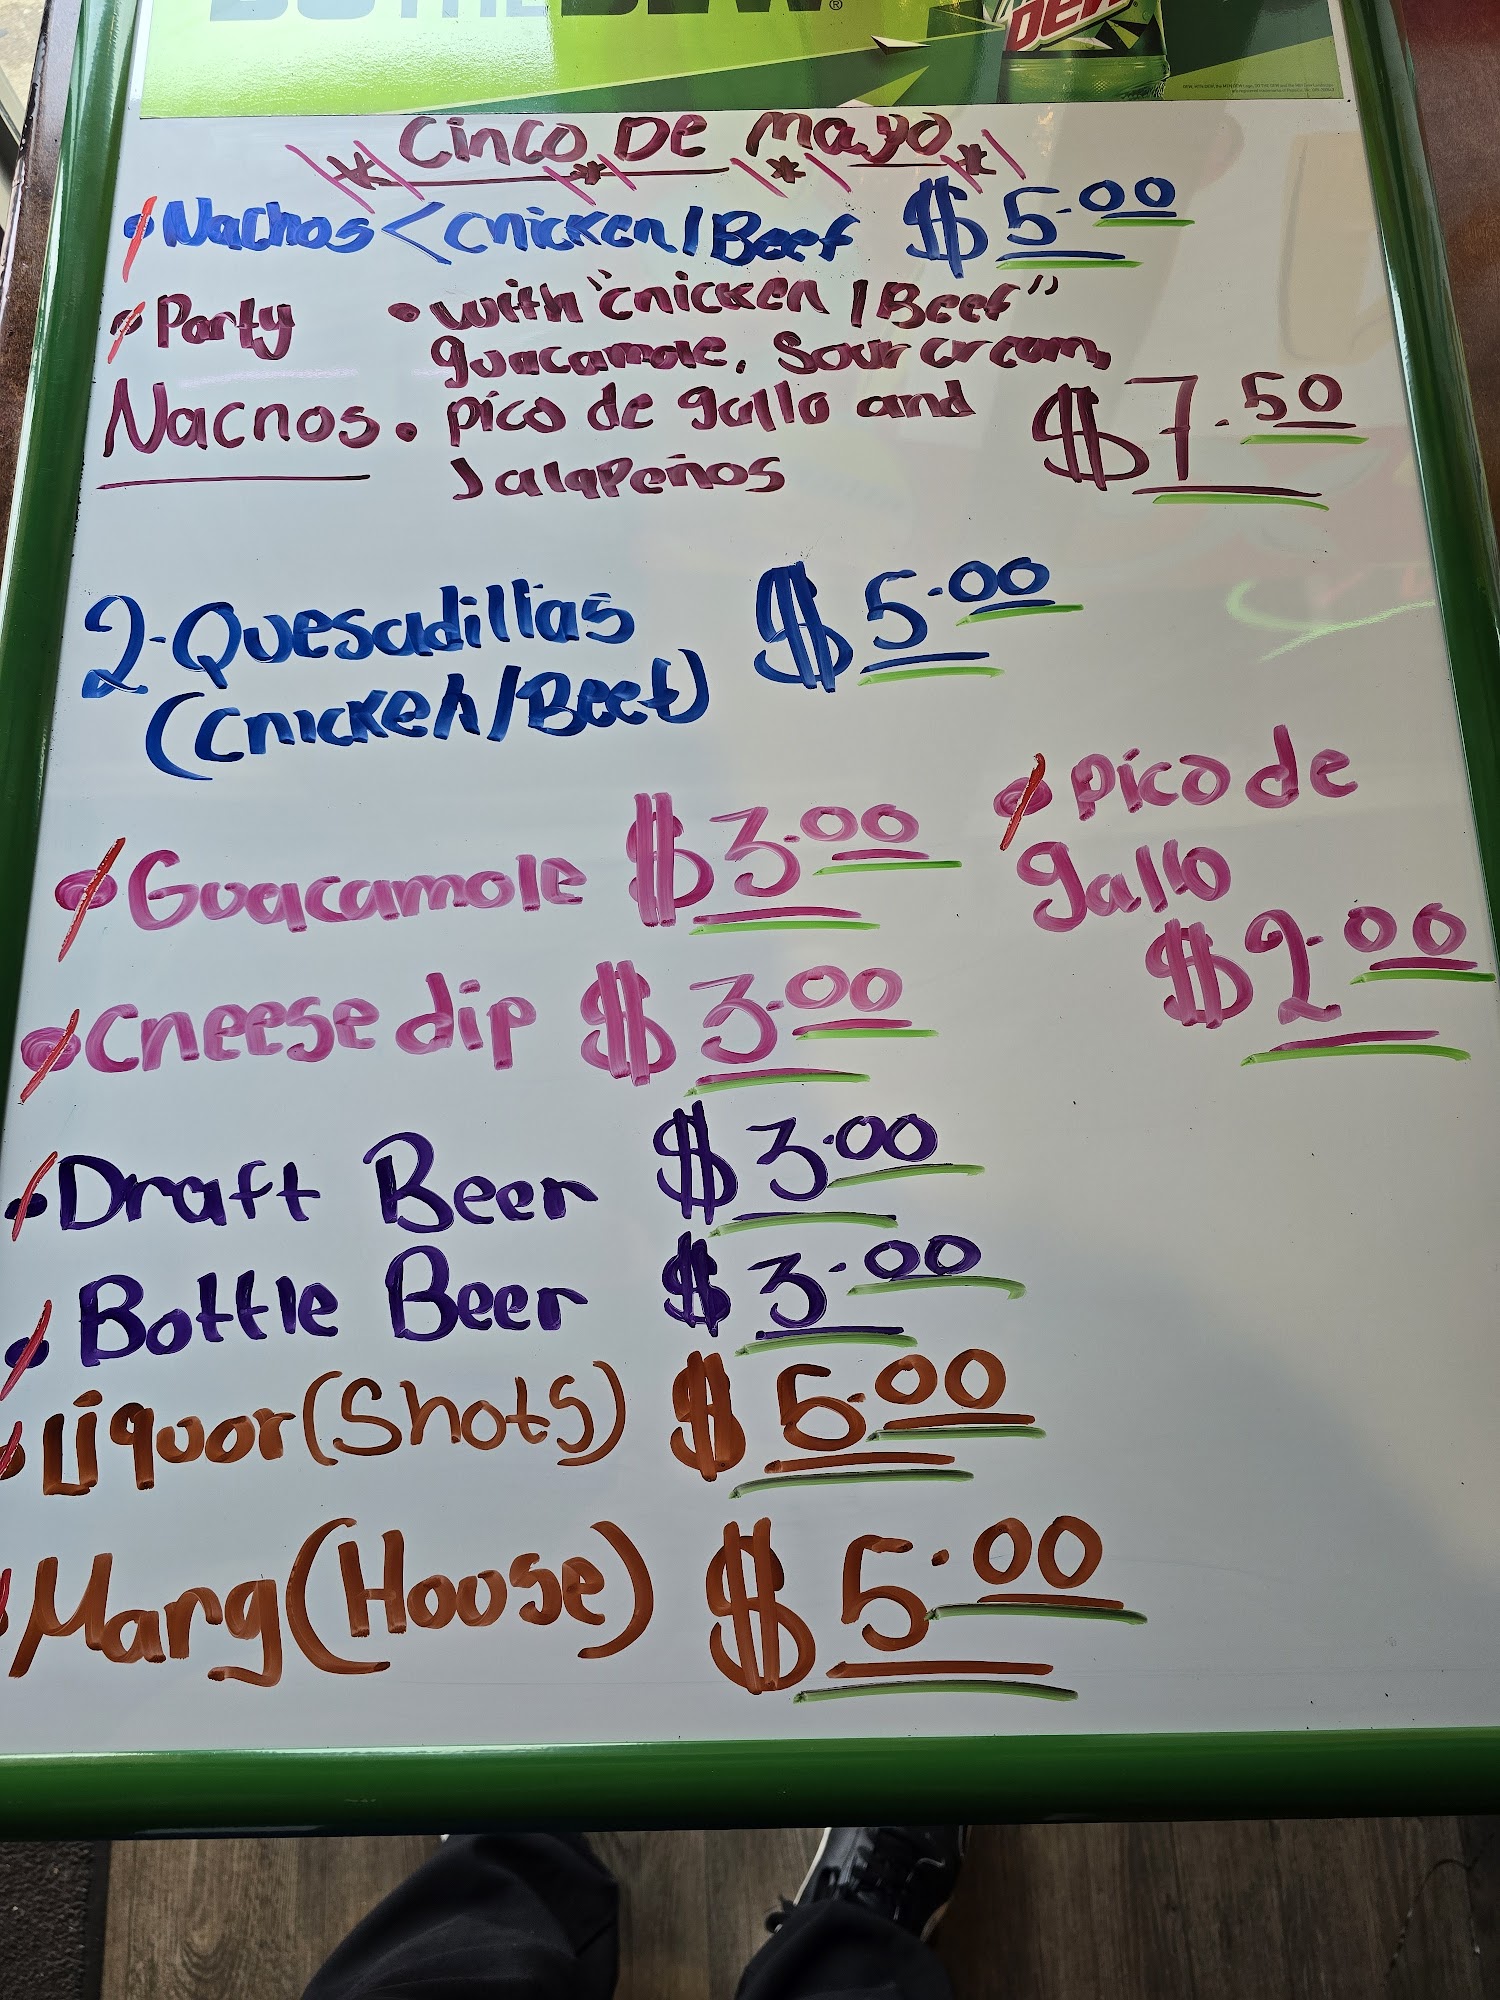 DEW
* Cinco * DE * Mayo *
• Nachos < Chicken / Beef $5.00
• Party • with "chicken / Beef"
guacamole, Sour cream,
Nachos • pico de gallo and $7.50
Jalapeños
2-Quesadillas $5.00
(Chicken/Beef)
• Guacamole $3.00
• Pico de
gallo
$2.00
• Cheese dip $3.00
• Draft Beer $3.00
• Bottle Beer $3.00
• Liquor (Shots) $5.00
• Marg (House) $5.00